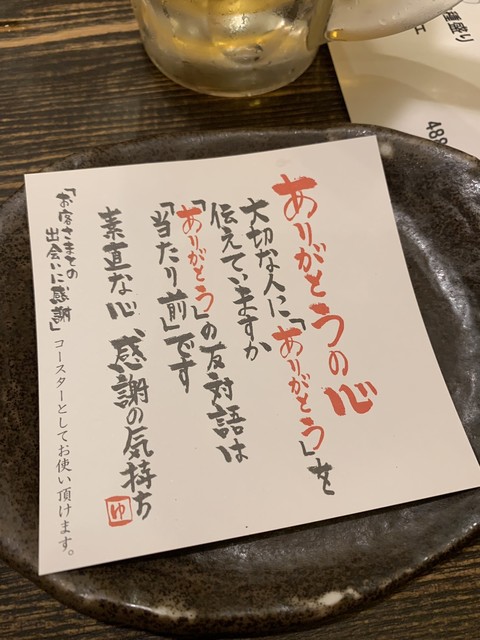 ありがとうの心
大切な人に「ありがとう」を
伝えていますか
「ありがとう」の反対語は
「当たり前」です
素直な心、感謝の気持ち
ゆ
「お客さまとの
出会いに感謝」
コースターとしてお使い頂けます。
種盛り